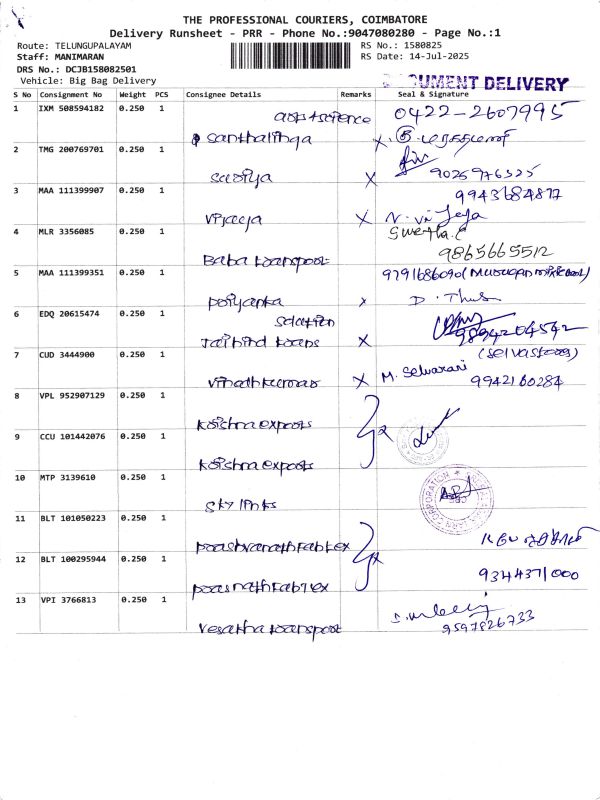 THE PROFESSIONAL COURIERS, COIMBATORE
Delivery Runsheet - PRR - Phone No.:9047080280 - Page No.:1
Route: TELUNGUPALAYAM
Staff: MANIMARAN
DRS No.: DCJB158082501
Vehicle: Big Bag Delivery
RS No.: 1580825
RS Date: 14-Jul-2025
DOCUMENT DELIVERY
S No Consignment No Weight PCS Consignee Details Remarks Seal & Signature
1 IXM 508594182 0.250 1
0422-2607995
santhalinga
2 TMG 200769701 0.250 1
saviya X 9025976525
3 MAA 111399907 0.250 1
9943684877
vijaya X N. Vijeya
4 MLR 3356085 0.250 1
Swetha.C
Baba transport 9865665512
5 MAA 111399351 0.250 1
9791686090
priyanka x D.
6 EDQ 20615474 0.250 1
Jaihind trans X 9894204542
7 CUD 3444900 0.250 1
(Selvastores)
vinothkumar X M. Selvarani 9942160284
8 VPL 952907129 0.250 1
krishna exports
9 CCU 101442076 0.250 1
krishna exports
10 MTP 3139610 0.250 1
sky links
11 BLT 101050223 0.250 1
parshvanath fabtex
12 BLT 100295944 0.250 1
9344371000
13 VPI 3766813 0.250 1
9597826733
transport